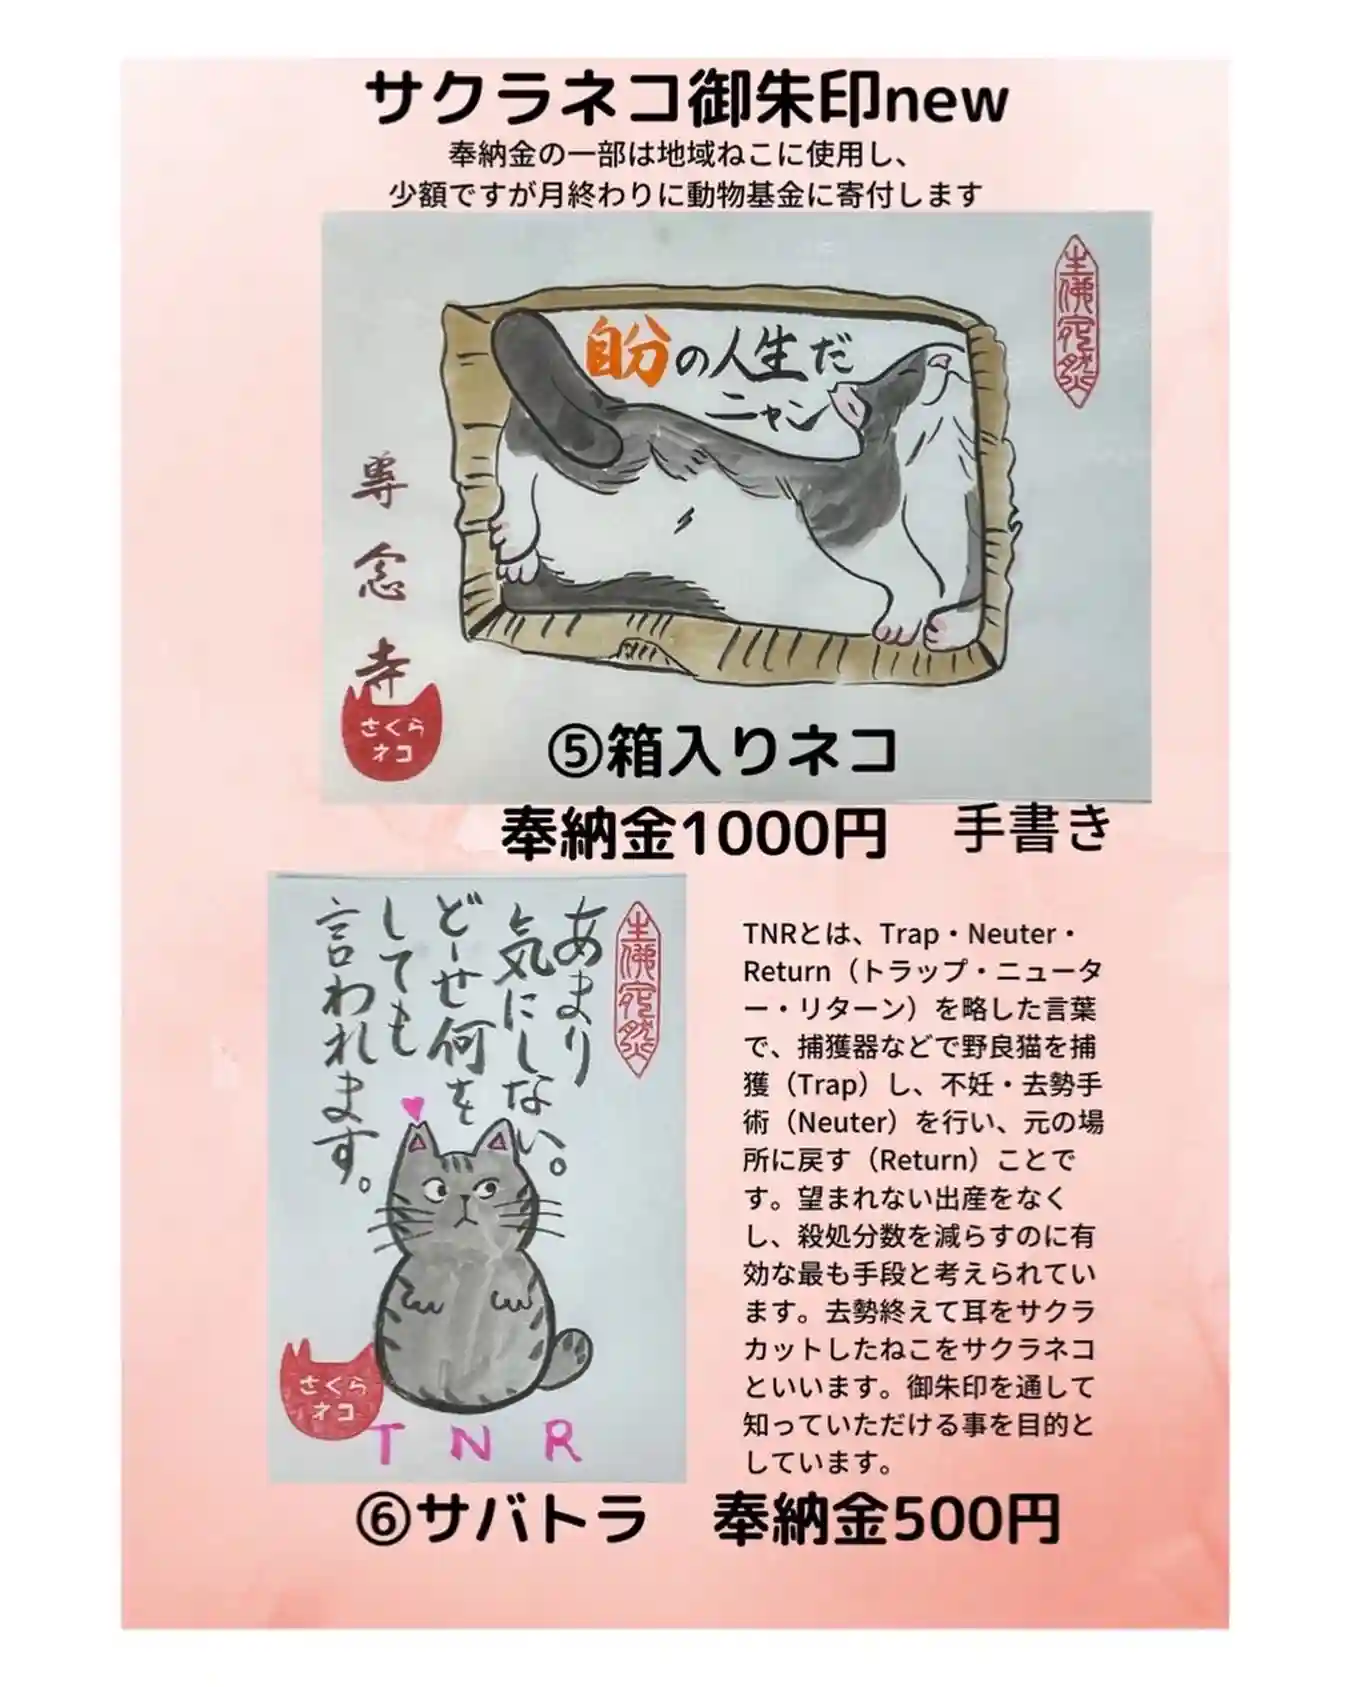 サクラネコ御朱印new
奉納金の一部は地域ねこに使用し、
少額ですが月終わりに動物基金に寄付します
自分の人生だ
ニャン
専念寺
さくら
ネコ
⑤箱入りネコ
奉納金1000円 手書き
あまり
気にしない。
どーせ何を
しても
言われます。
さくら
ネコ
TNR
TNRとは、Trap・Neuter・
Return（トラップ・ニュータ
ー・リターン）を略した言葉
で、捕獲器などで野良猫を捕
獲（Trap）し、不妊・去勢手
術（Neuter）を行い、元の場
所に戻す（Return）ことで
す。望まれない出産をなく
し、殺処分数を減らすのに有
効な最も手段と考えられてい
ます。去勢終えて耳をサクラ
カットしたねこをサクラネコ
といいます。御朱印を通して
知っていただける事を目的と
しています。
⑥サバトラ 奉納金500円